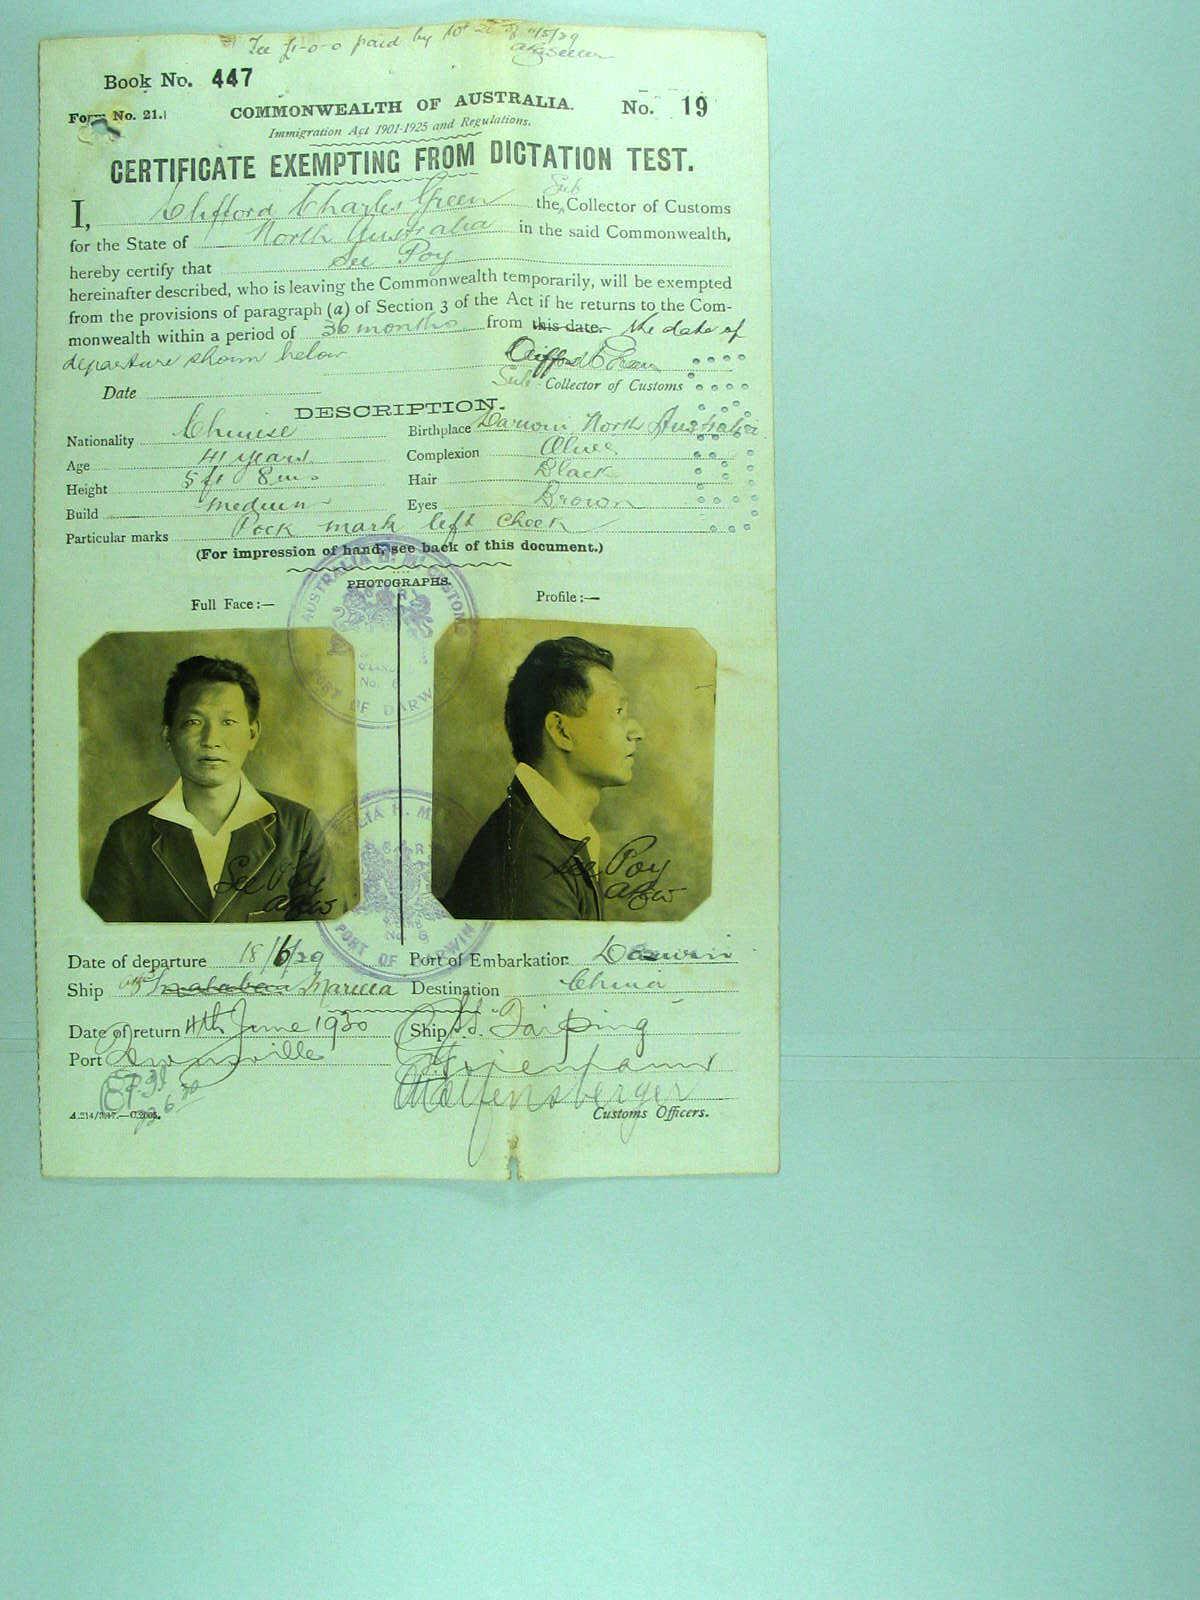 Fee £1-0-0 paid by
Book No. 447
Form No. 21.
COMMONWEALTH OF AUSTRALIA.
No. 19
Immigration Act 1901-1925 and Regulations.
CERTIFICATE EXEMPTING FROM DICTATION TEST.
I, Clifford Charles Green the Sub Collector of Customs
for the State of North Australia in the said Commonwealth,
hereby certify that See Poy
hereinafter described, who is leaving the Commonwealth temporarily, will be exempted
from the provisions of paragraph (a) of Section 3 of the Act if he returns to the Com-
monwealth within a period of 36 months from this date. the date of
departure shown below
Clifford C Green
Date
Sub-Collector of Customs
DESCRIPTION.
Nationality Chinese Birthplace Darwin North Australia
Age 41 years Complexion Olive
Height 5 ft 8 ins Hair Black
Build medium Eyes Brown
Particular marks Pock mark left cheek
(For impression of hand, see back of this document.)
PHOTOGRAPHS.
Full Face:— Profile:—
AUSTRALIA H. M. CUSTOMS
No. 6
PORT OF DARWIN
See Poy
See Poy
PORT OF DARWIN
No. 6
Date of departure 18/6/29 Port of Embarkation Darwin
Ship Malabar Marella Destination China
Date of return 4th June 1930 Ship S.S. Taiping
Port Townsville
Customs Officers.